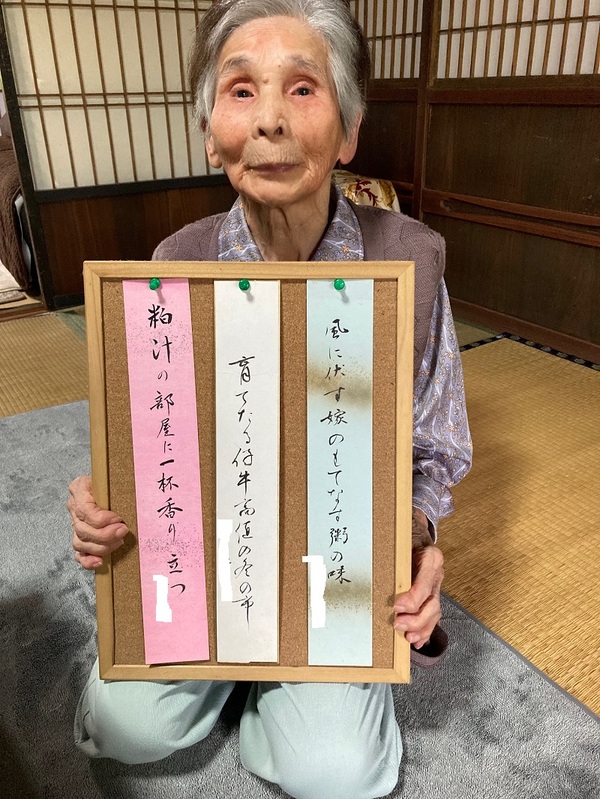 風に伏す嫁のもてなす粥の味
育てたる仔牛高値の冬の市
粕汁の部屋に一杯香り立つ